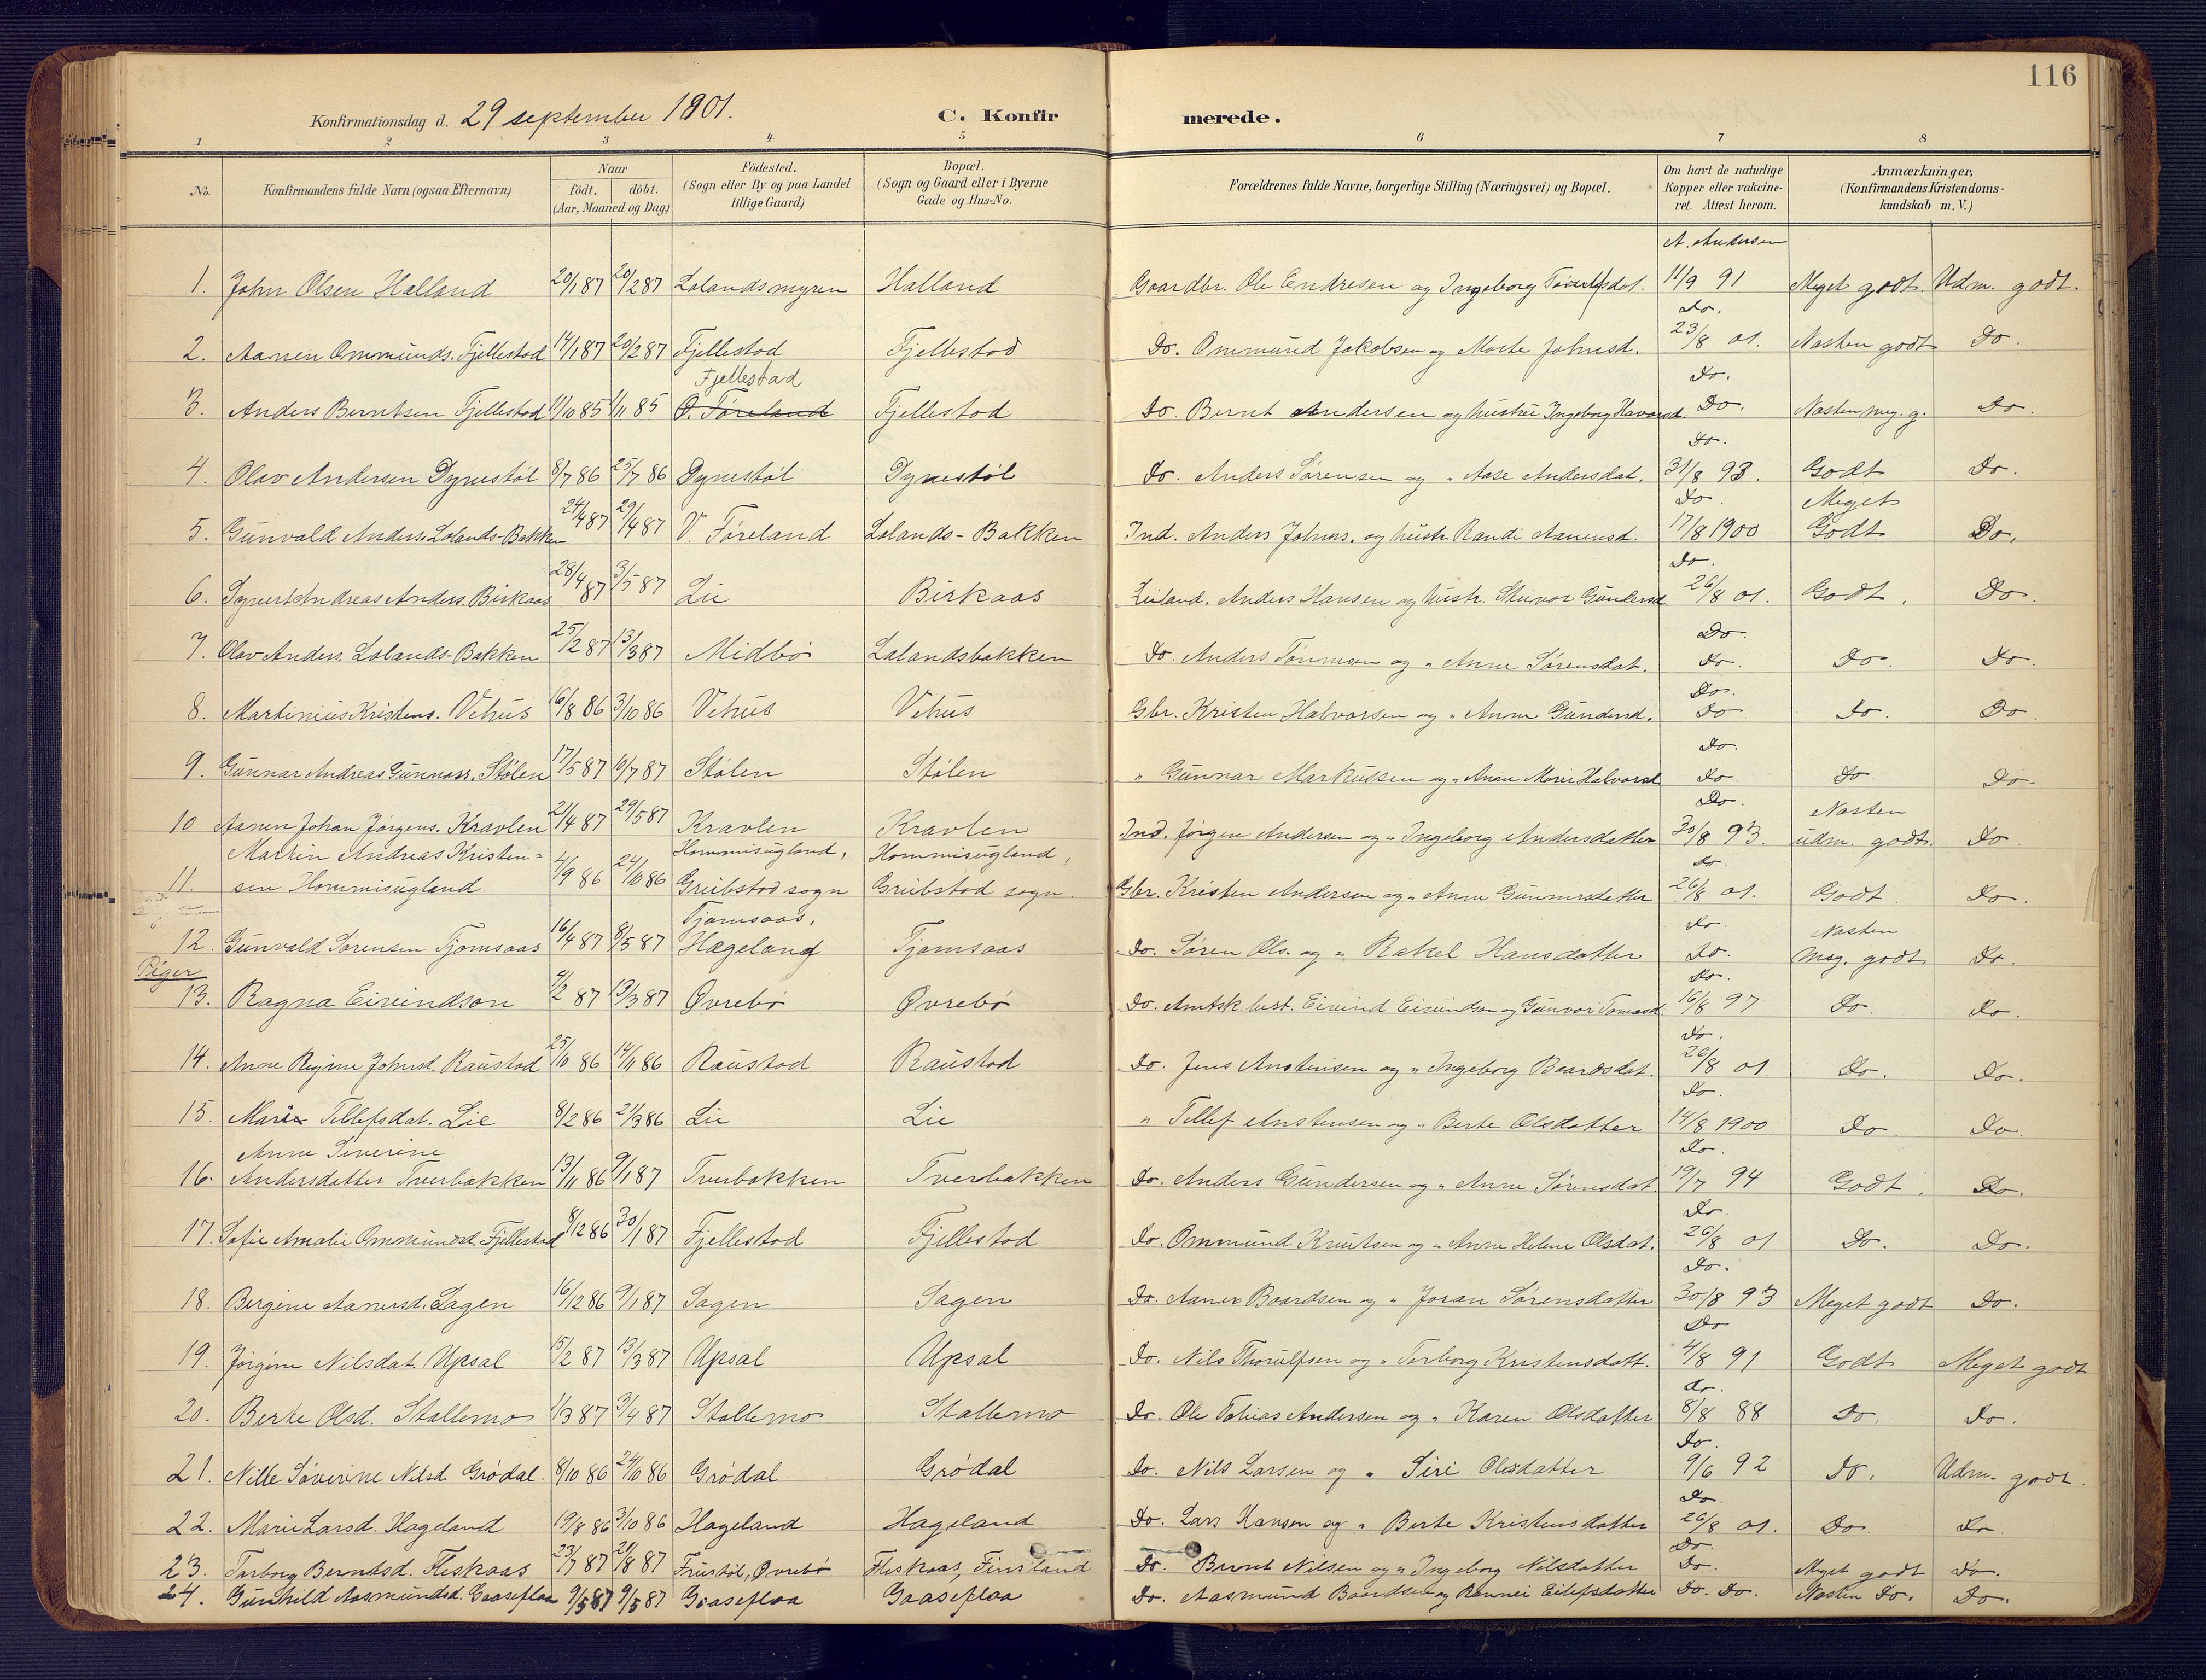 116
Konfirmationsdag d. 29 september 1901.
C. Konfirmerede.
1 2 3 4 5 6 7 8
No.
Konfirmandens fulde Navn (ogsaa Efternavn)
Naar
födt. döbt.
(Aar, Maaned og Dag)
Födested.
(Sogn eller By og paa Landet
tillige Gaard)
Bopæl.
(Sogn og Gaard eller i Byerne
Gade og Hus-No.
Forældrenes fulde Navne, borgerlige Stilling (Næringsvei) og Bopæl.
Om havt de naturlige
Kopper eller vakcine-
ret. Attest herom.
Anmærkninger,
(Konfirmandens Kristendoms-
kundskab m. V.)
A. Andersen
1. John Olsen Halland 20/1 87 20/2 87 Lolandsmyren Halland Gaardbr. Ole Endresen og Ingeborg 11/9 91 Meget godt. Udm. godt.
Do.
2. Aanen Ommunds. Fjellestad 14/1 87 20/2 87 Fjellestad Fjellestad Do. Ommund Jakobsen og Marte Johnsd. 23/8 01. Næsten godt Do.
Fjellestad Do.
3. Anders Berntsen Fjellestad 11/10 85 1/11 85 Ø. Føreland Fjellestad Do. Bernt Andersen og hustru Ingeborg Havorsd. Do. Næsten meg. g. Do.
Do.
4. Olav Andersen Dynestøl 8/7 86 25/7 86 Dynestøl Dynestøl Do. Anders Sørensen og " Aase Andersdat. 31/8 93. Godt Do.
Do. Meget
5. Gunvald Anders. Lolands-Bakken 24/4 87 29/4 87 V. Føreland Lolands-Bakken Ind. Anders Johns. og hustr. Randi Aanensd. 17/8 1900 Godt Do.
Do.
6. Syvert Andreas Anders. Birkaas 28/4 87 3/5 87 Lie Birkaas Leiland. Anders Hansen og hustr. Gundersd 26/8 01. Godt. Do.
Do.
7. Olav Anders. Lolands-Bakken 25/2 87 13/3 87 Midbø Lolandsbakken Do. Anders Tønnesen og " Anne Sørensdat. Do. Do. Do.
Do.
8. Martinius Kristens. Vehus 16/8 86 3/10 86 Vehus Vehus Gbr. Kristen Halvorsen og " Anne Gundersd. Do Do. Do.
Do.
9. Gunnar Andreas Gunnars. Stølen 17/5 87 10/7 87 Stølen Stølen " Gunnar Markussen og " Anne Marie Halvorsd Do Do. Do.
Do. Næsten
10 Aanen Johan Jørgens. Kravlen 21/4 87 29/5 87 Kravlen Kravlen Ind. Jørgen Andersen og " Ingeborg Andersdatter 30/8 93. udm. godt. Do.
Martin Andreas Kristen= Hommisugland, Hommisugland, Do.
11. sen Hommisugland 4/9 86 24/10 86 Greibstad sogn Greibstad sogn Gbr. Kristen Andersen og " Anne Gunnersdatter 26/8 01. Godt. Do.
Tjomsaas, Do. Næsten
12. Gunvald Sørensen Tjomsaas 16/4 87 8/5 87 Hægeland Tjomsaas Do. Søren Ols. og " Rakel Hansdatter Do. Meg. godt Do.
Piger Do.
13. Ragna Eivindson 9/2 87 13/3 87 Øvrebø Øvrebø Do. Amtsk. best. Eivind Eivindson og Gunvor Tomasd 16/8 97 Do. Do.
Do.
14. Anne Regine Johnsd. Raustad 25/10 86 14/11 86 Raustad Raustad Do. Jens Anstensen og " Ingeborg Baardsdat. 26/8 01 Do. Do.
Do.
15. Marie Tellefsdat. Lie 8/2 86 21/3 86 Lie Lie " Tellef Anstensen og " Berte Olsdatter 14/8 1900 Do. Do.
Anne Severine Do.
16. Andersdatter Tverbakken 13/11 86 9/1 87 Tverbakken Tverbakken Do. Anders Gundersen og " Anne Sørensdat. 19/7 94 Godt. Do.
Do.
17. Sofie Amalie Ommundsd. Fjellestad 8/12 86 30/1 87 Fjellestad Fjellestad Do. Ommund Knutsen og " Anne Helene Olsdat. 26/8 01 Do. Do.
Do.
18. Bergine Aanensd. Sagen 16/12 86 9/1 87 Sagen Sagen Do. Aanen Baardsen og " Joran Sørensdatter 30/8 93 Meget godt Do.
Do
19. Jørgine Nilsdat. Upsal 15/2 87 13/3 87 Upsal Upsal Do. Nils Thorulfsen og " Torborg Kristensdatt. 4/8 91 Godt Meget godt
Do.
20. Berte Olsd. Stallemo 1/3 87 3/4 87 Stallemo Stallemo Do. Ole Tobias Andersen og " Karen Olsdatter 8/8 88 Do. Do.
Do.
21. Nille Søverine Nilsd Grødal. 8/10 86 24/10 86 Grødal Grødal Do. Nils Larsen og " Siri Olesdatter 9/6 92 Do. Udm. godt.
Do.
22. Marie Larsd. Hageland 19/8 86 3/10 86 Hageland Hageland Do. Lars Hansen og " Berte Kristensdatter 26/8 01. Do. Do.
Do
23. Torborg Berntsd. Fleskaas 23/7 87 21/8 87 Frustøl, Øvrebø Fleskaas, Finsland Do. Bernt Nilsen og " Ingeborg Nilsdatter Do. Meget godt Do.
24. Gunhild Aasmundsd. Gaaseflaa 9/5 87 9/5 87 Gaaseflaa Gaaseflaa Do. Aasmund Baardsen og Rannei Eilefsdatter Do. Do. Næsten Do. Do.